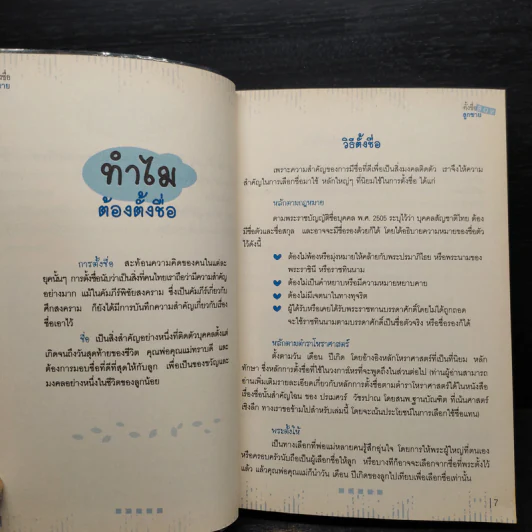 ทำไม
ต้องตั้งชื่อ
การตั้งชื่อ สะท้อนความคิดของคนในแต่ละ
ยุคนั้นๆ การตั้งชื่อนับว่าเป็นสิ่งที่คนไทยเราถือว่ามีความสำคัญ
อย่างมาก แม้ในคัมภีร์พิชัยสงคราม ซึ่งเป็นคัมภีร์เกี่ยวกับ
ศึกสงคราม ก็ยังได้มีการบันทึกความสำคัญเกี่ยวกับเรื่อง
ชื่อเอาไว้
ชื่อ เป็นสิ่งสำคัญอย่างหนึ่งที่ติดตัวบุคคลตั้งแต่
เกิดจนถึงวันสุดท้ายของชีวิต คุณพ่อคุณแม่ทราบดี และ
ต้องการมอบชื่อที่ดีที่สุดให้กับลูก เพื่อเป็นของขวัญและ
มงคลอย่างหนึ่งในชีวิตของลูกน้อย
ตั้งชื่อ
ลูกชาย
วิธีตั้งชื่อ
เพราะความสำคัญของการมีชื่อที่ดีเพื่อเป็นสิ่งมงคลติดตัว เราจึงให้ความ
สำคัญในการเลือกชื่อมาใช้ หลักใหญ่ๆ ที่นิยมใช้ในการตั้งชื่อ ได้แก่
หลักตามกฎหมาย
ตามพระราชบัญญัติชื่อบุคคล พ.ศ. 2505 ระบุไว้ว่า บุคคลสัญชาติไทย ต้อง
มีชื่อตัวและชื่อสกุล และอาจจะมีชื่อรองด้วยก็ได้ โดยได้อธิบายความหมายของชื่อตัว
ไว้ดังนี้
ต้องไม่พ้องหรือมุ่งหมายให้คล้ายกับพระปรมาภิไธย หรือพระนามของ
พระราชินี หรือราชทินนาม
ต้องไม่เป็นคำหยาบหรือมีความหมายหยาบคาย
ต้องไม่มีเจตนาในทางทุจริต
ผู้ได้รับหรือเคยได้รับพระราชทานบรรดาศักดิ์โดยไม่ได้ถูกถอด
จะใช้ราชทินนามตามบรรดาศักดิ์เป็นชื่อตัวจริง หรือชื่อรองก็ได้
หลักตามตำราโหราศาสตร์
ตั้งตามวัน เดือน ปีเกิด โดยอ้างอิงหลักโหราศาสตร์ที่เป็นที่นิยม หลัก
ทักษา ซึ่งหลักการตั้งชื่อที่ใช้ในวงการโหรที่จะพูดถึงในส่วนต่อไป (ท่านผู้อ่านสามารถ
อ่านเพิ่มเติมรายละเอียดเกี่ยวกับหลักการตั้งชื่อตามตำราโหราศาสตร์ได้ในหนังสือ
เรื่องชื่อนั้นสำคัญไฉน ของ ปรเมศวร์ วัชรปาณ โดยสนพ.ฐานบัณฑิต ที่เน้นศาสตร์
เชิงลึก ทางเราขอข้ามไปสำหรับเล่มนี้ โดยจะเน้นประโยชน์ในการเลือกใช้ชื่อแทน)
พระตั้งให้
เป็นทางเลือกที่พ่อแม่หลายคนรู้สึกอุ่นใจ โดยการให้พระผู้ใหญ่ที่ตนเอง
หรือครอบครัวนับถือเป็นผู้เลือกชื่อให้ลูก หรือบางทีก็อาจจะเลือกจากชื่อที่พระตั้งไว้
แล้ว แล้วคุณพ่อคุณแม่ก็นำวัน เดือน ปีเกิดของลูกไปเทียบเพื่อเลือกชื่อเท่านั้น
7